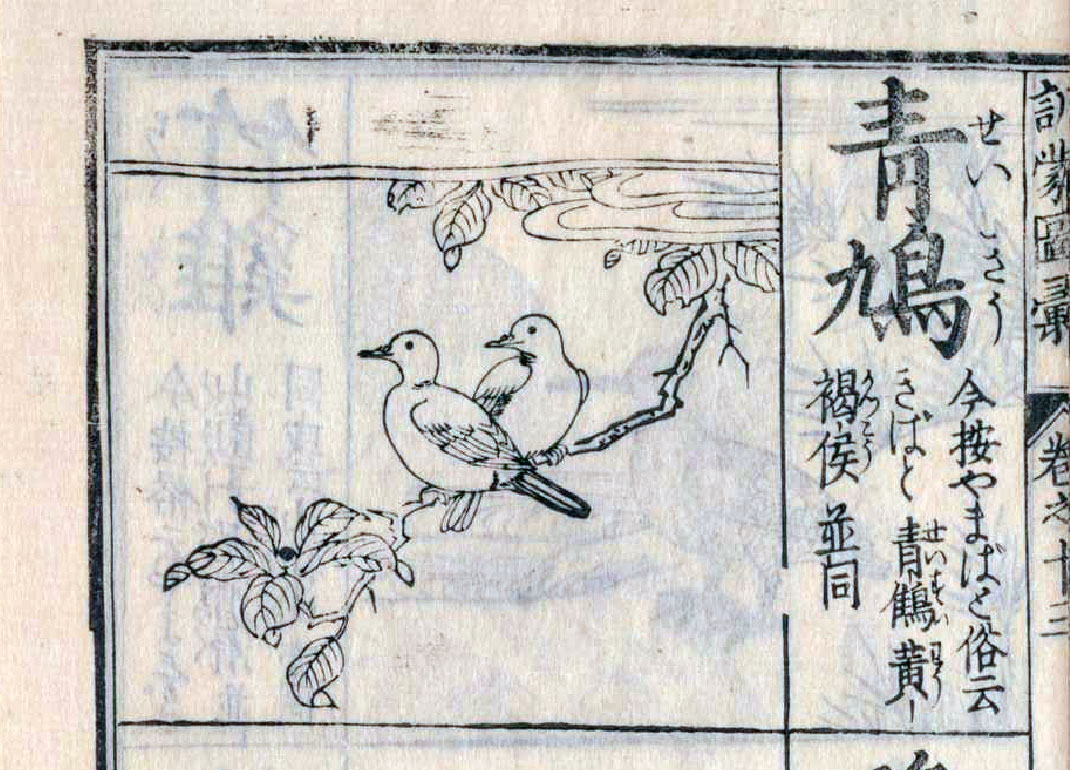 訓蒙圖彙
巻之十三
青鳩
せいきう
今按やまばと俗云
きばと 青鵻 黄
褐侯 並同
かつこう